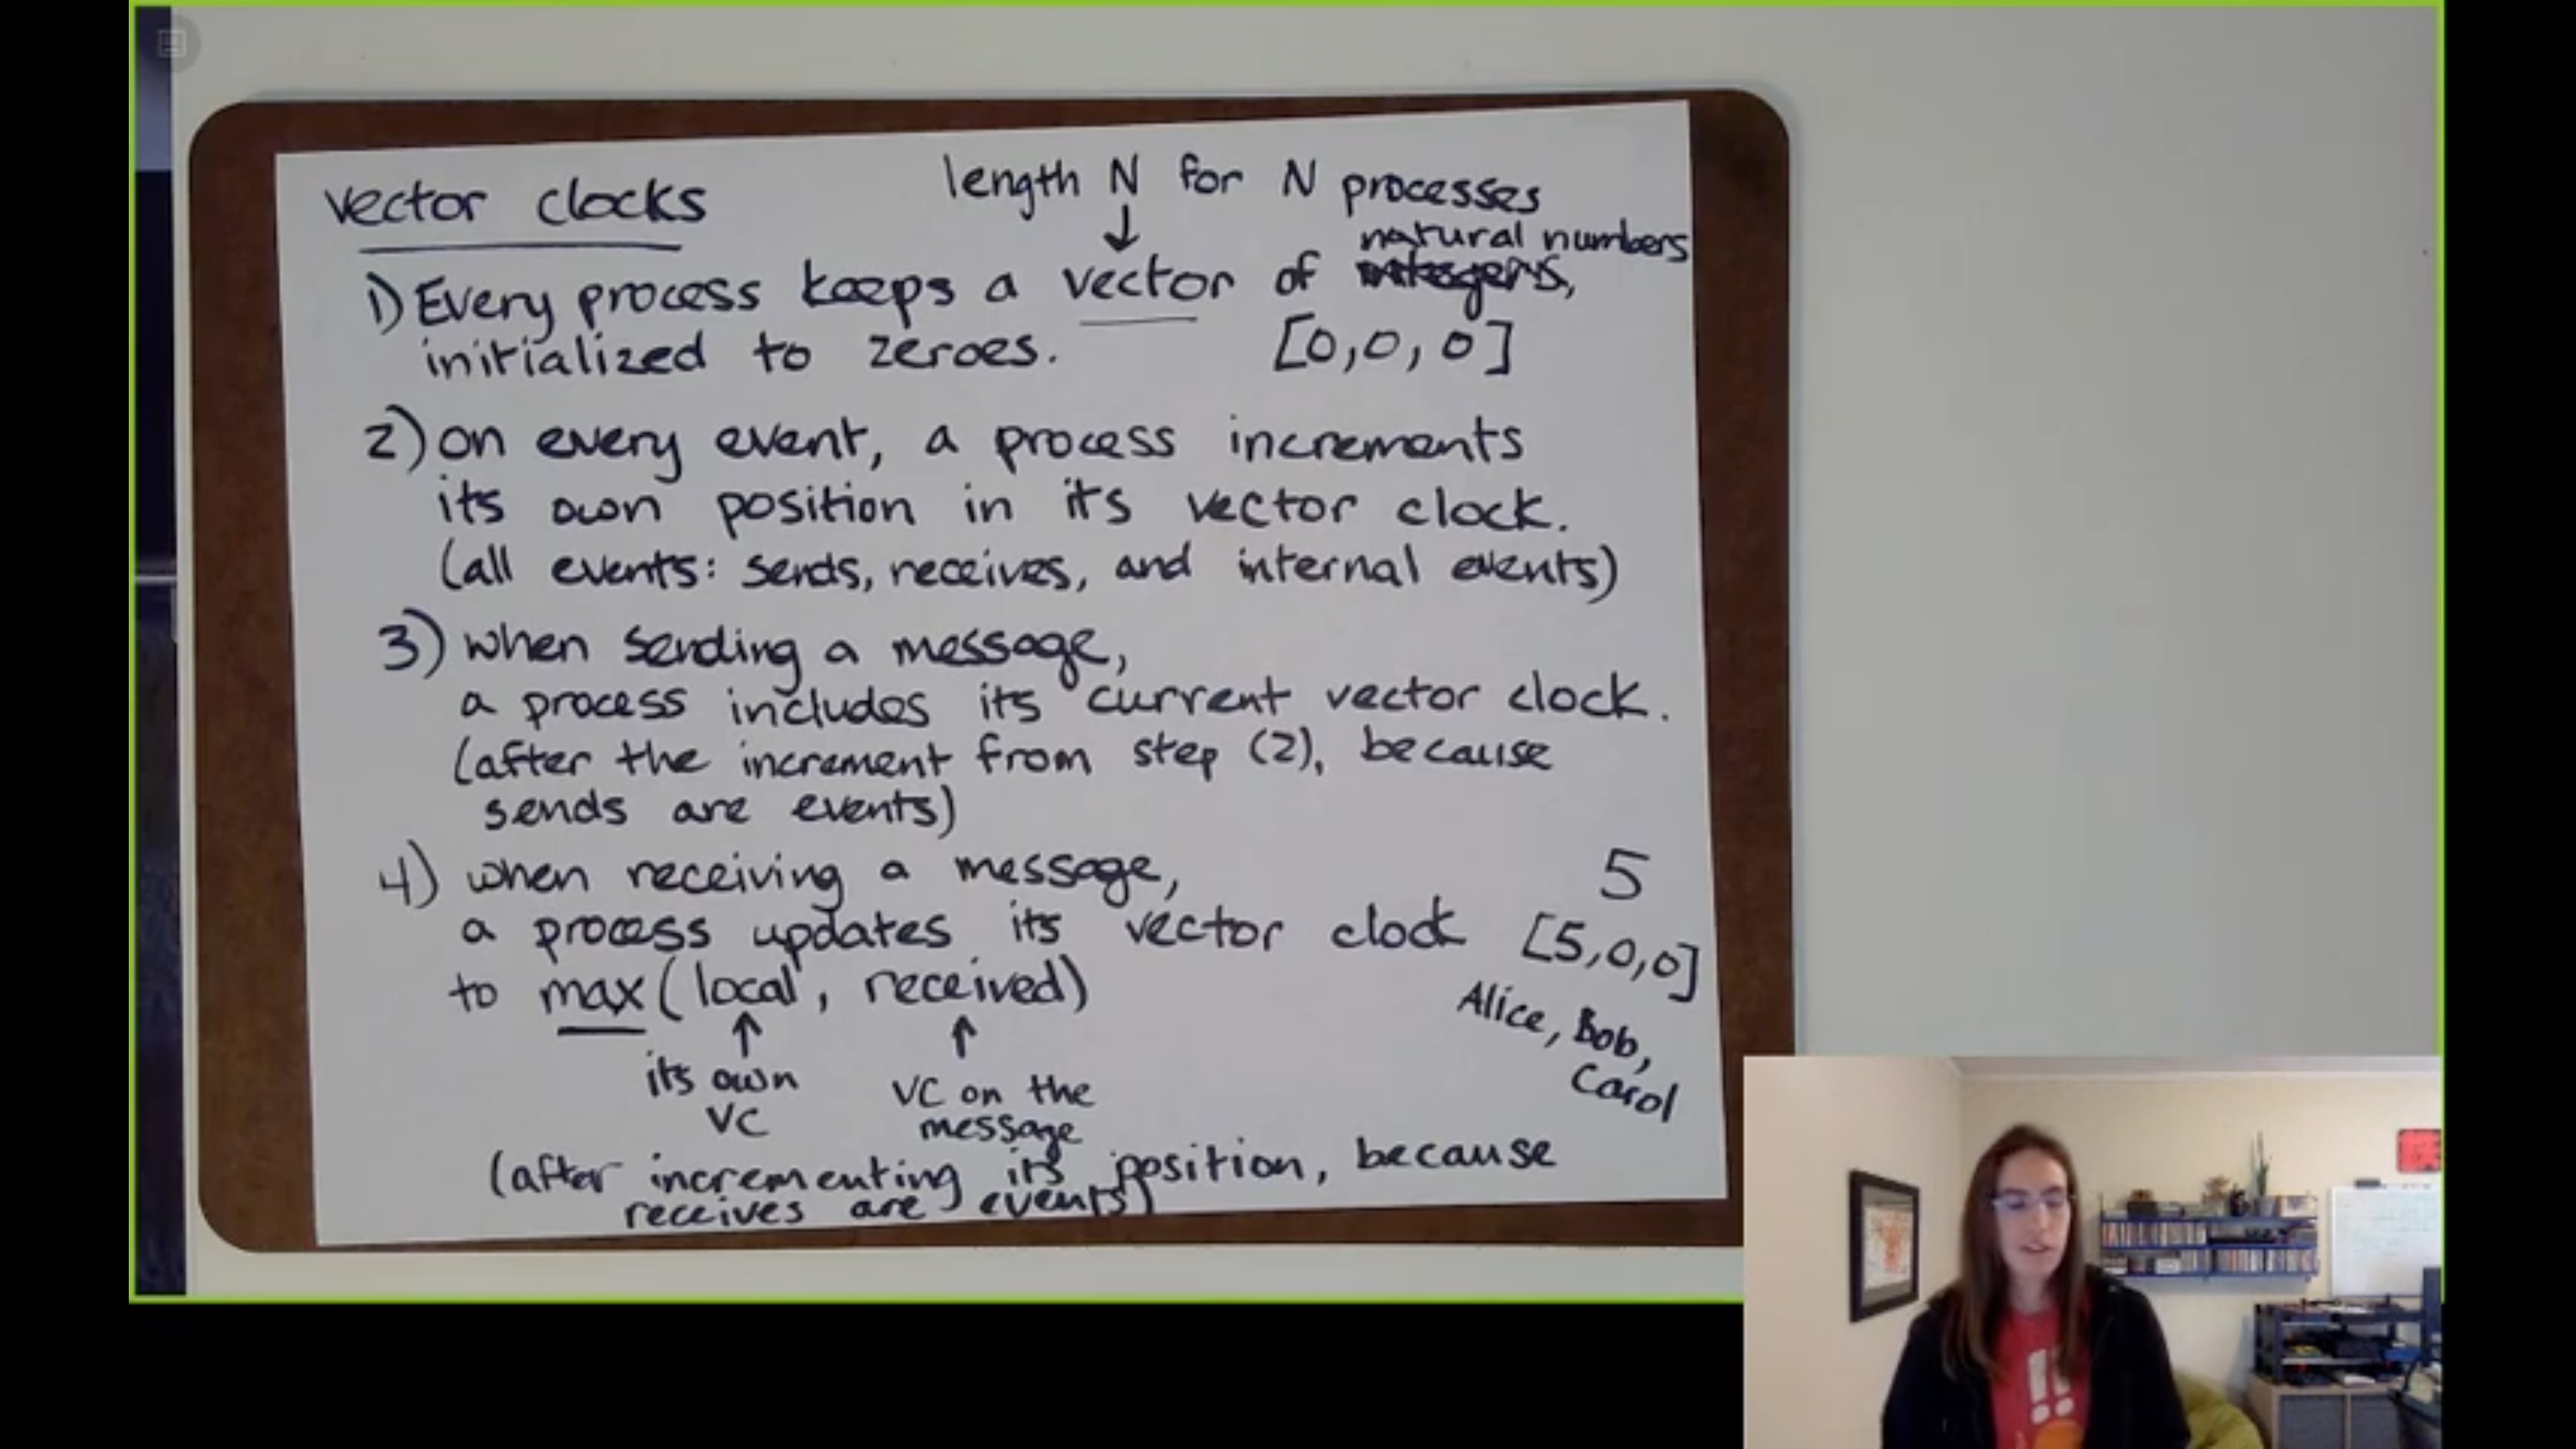 vector clocks
length N for N processes
↓
natural numbers
1) Every process keeps a vector of integers,
initialized to zeroes. [0,0,0]
2) on every event, a process increments
its own position in its vector clock.
(all events: sends, receives, and internal events)
3) when sending a message,
a process includes its current vector clock.
(after the increment from step (2), because
sends are events)
4) when receiving a message,
a process updates its vector clock
to max(local, received)
↑ ↑
its own
VC
VC on the
message
(after incrementing its position, because
receives are events)
5
[5,0,0]
Alice, Bob,
Carol